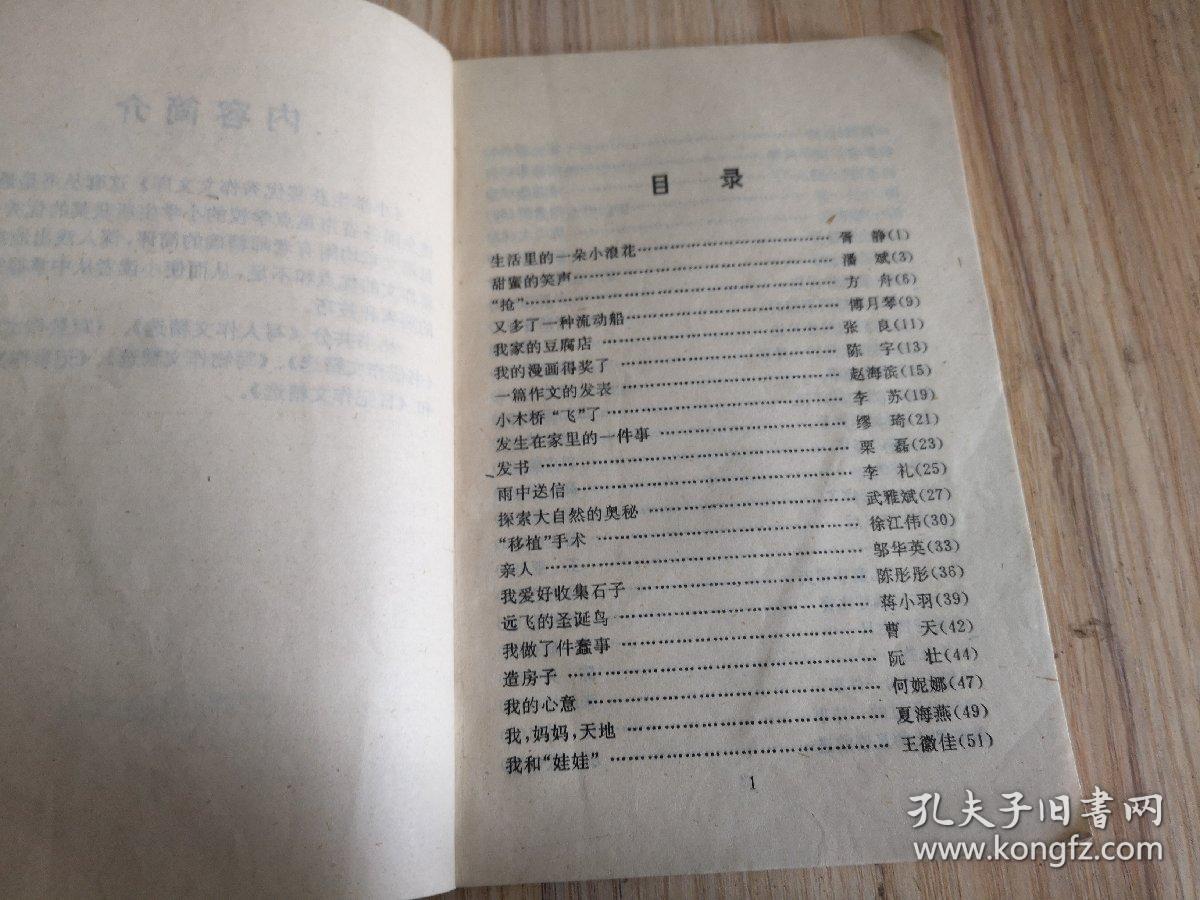 内容简介
目 录
生活里的一朵小浪花………………………胥 静(1)
甜蜜的笑声………………………潘 斌(3)
“抢”………………………方 舟(6)
又多了一种流动船………………………傅月琴(9)
我家的豆腐店………………………张 良(11)
我的漫画得奖了………………………陈 宇(13)
一篇作文的发表………………………赵海滨(15)
小木桥“飞”了………………………李 苏(19)
发生在家里的一件事………………………缪 琦(21)
发书………………………栗 磊(23)
雨中送信………………………李 礼(25)
探索大自然的奥秘………………………武雅斌(27)
“移植”手术………………………徐江伟(30)
亲人………………………邬华英(33)
我爱好收集石子………………………陈彤彤(36)
远飞的圣诞鸟………………………蒋小羽(39)
我做了件蠢事………………………曹 天(42)
造房子………………………阮 壮(44)
我的心意………………………何妮娜(47)
我,妈妈,天地………………………夏海燕(49)
我和“娃娃”………………………王徽佳(51)
1
孔夫子旧书网
www.kongfz.com